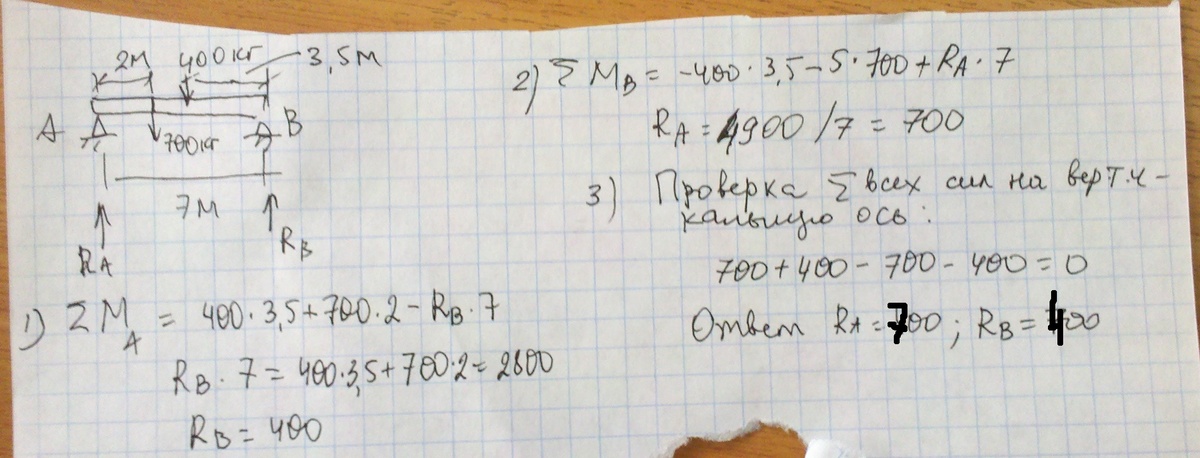 2м 400кг 3,5м
A B
700кг
7м
RA RB
1) ΣMA = 400·3,5+700·2-RB·7
RB·7=400·3,5+700·2=2800
RB=400
2) ΣMB=-400·3,5-5·700+RA·7
RA=4900/7=700
3) Проверка Σ всех сил на верти-
кальную ось:
700+400-700-400=0
Ответ RA=700; RB=400